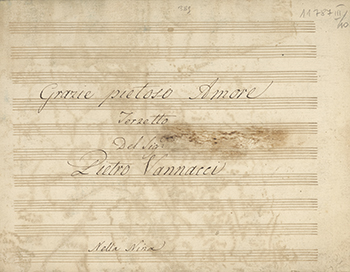 11767 III/10
Grazie pietoso Amore
Terzetto
Del Sig
Pietro Vannacci
Nella Nina